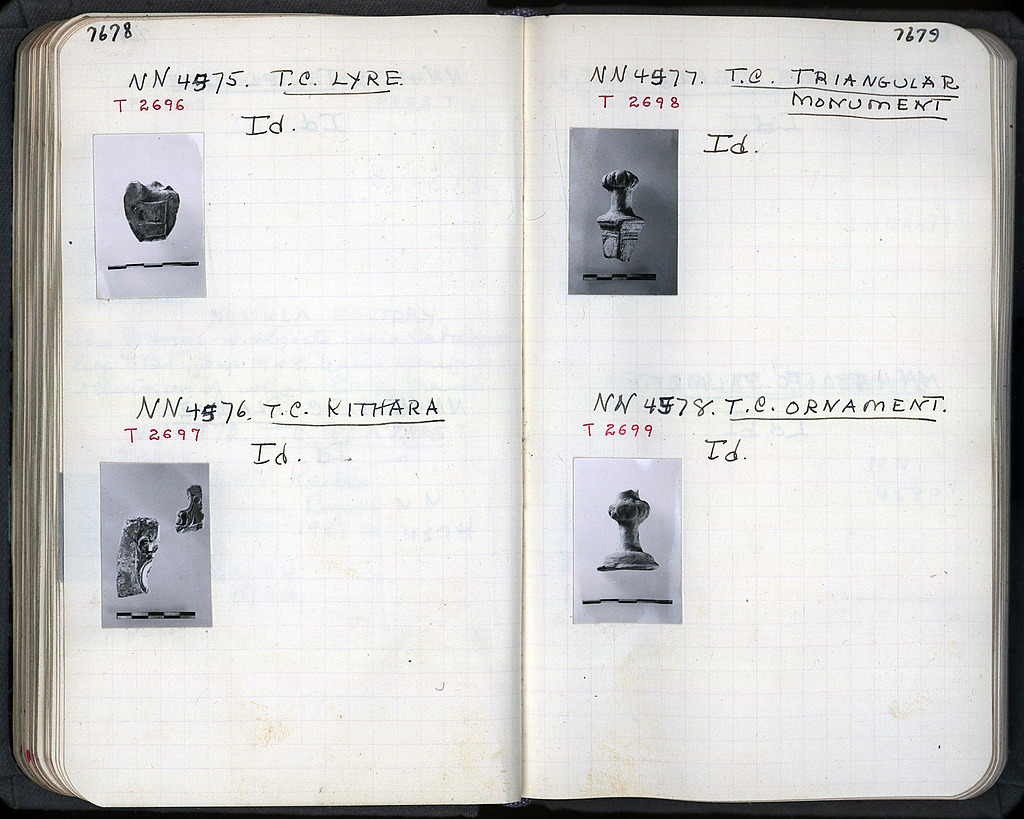 7678
NN 4575. T.C. LYRE
T 2696
Id.
NN 4576. T.C. KITHARA
T 2697
Id.
7679
NN 4577. T.C. TRIANGULAR
MONUMENT
T 2698
Id.
NN 4578. T.C. ORNAMENT.
T 2699
Id.